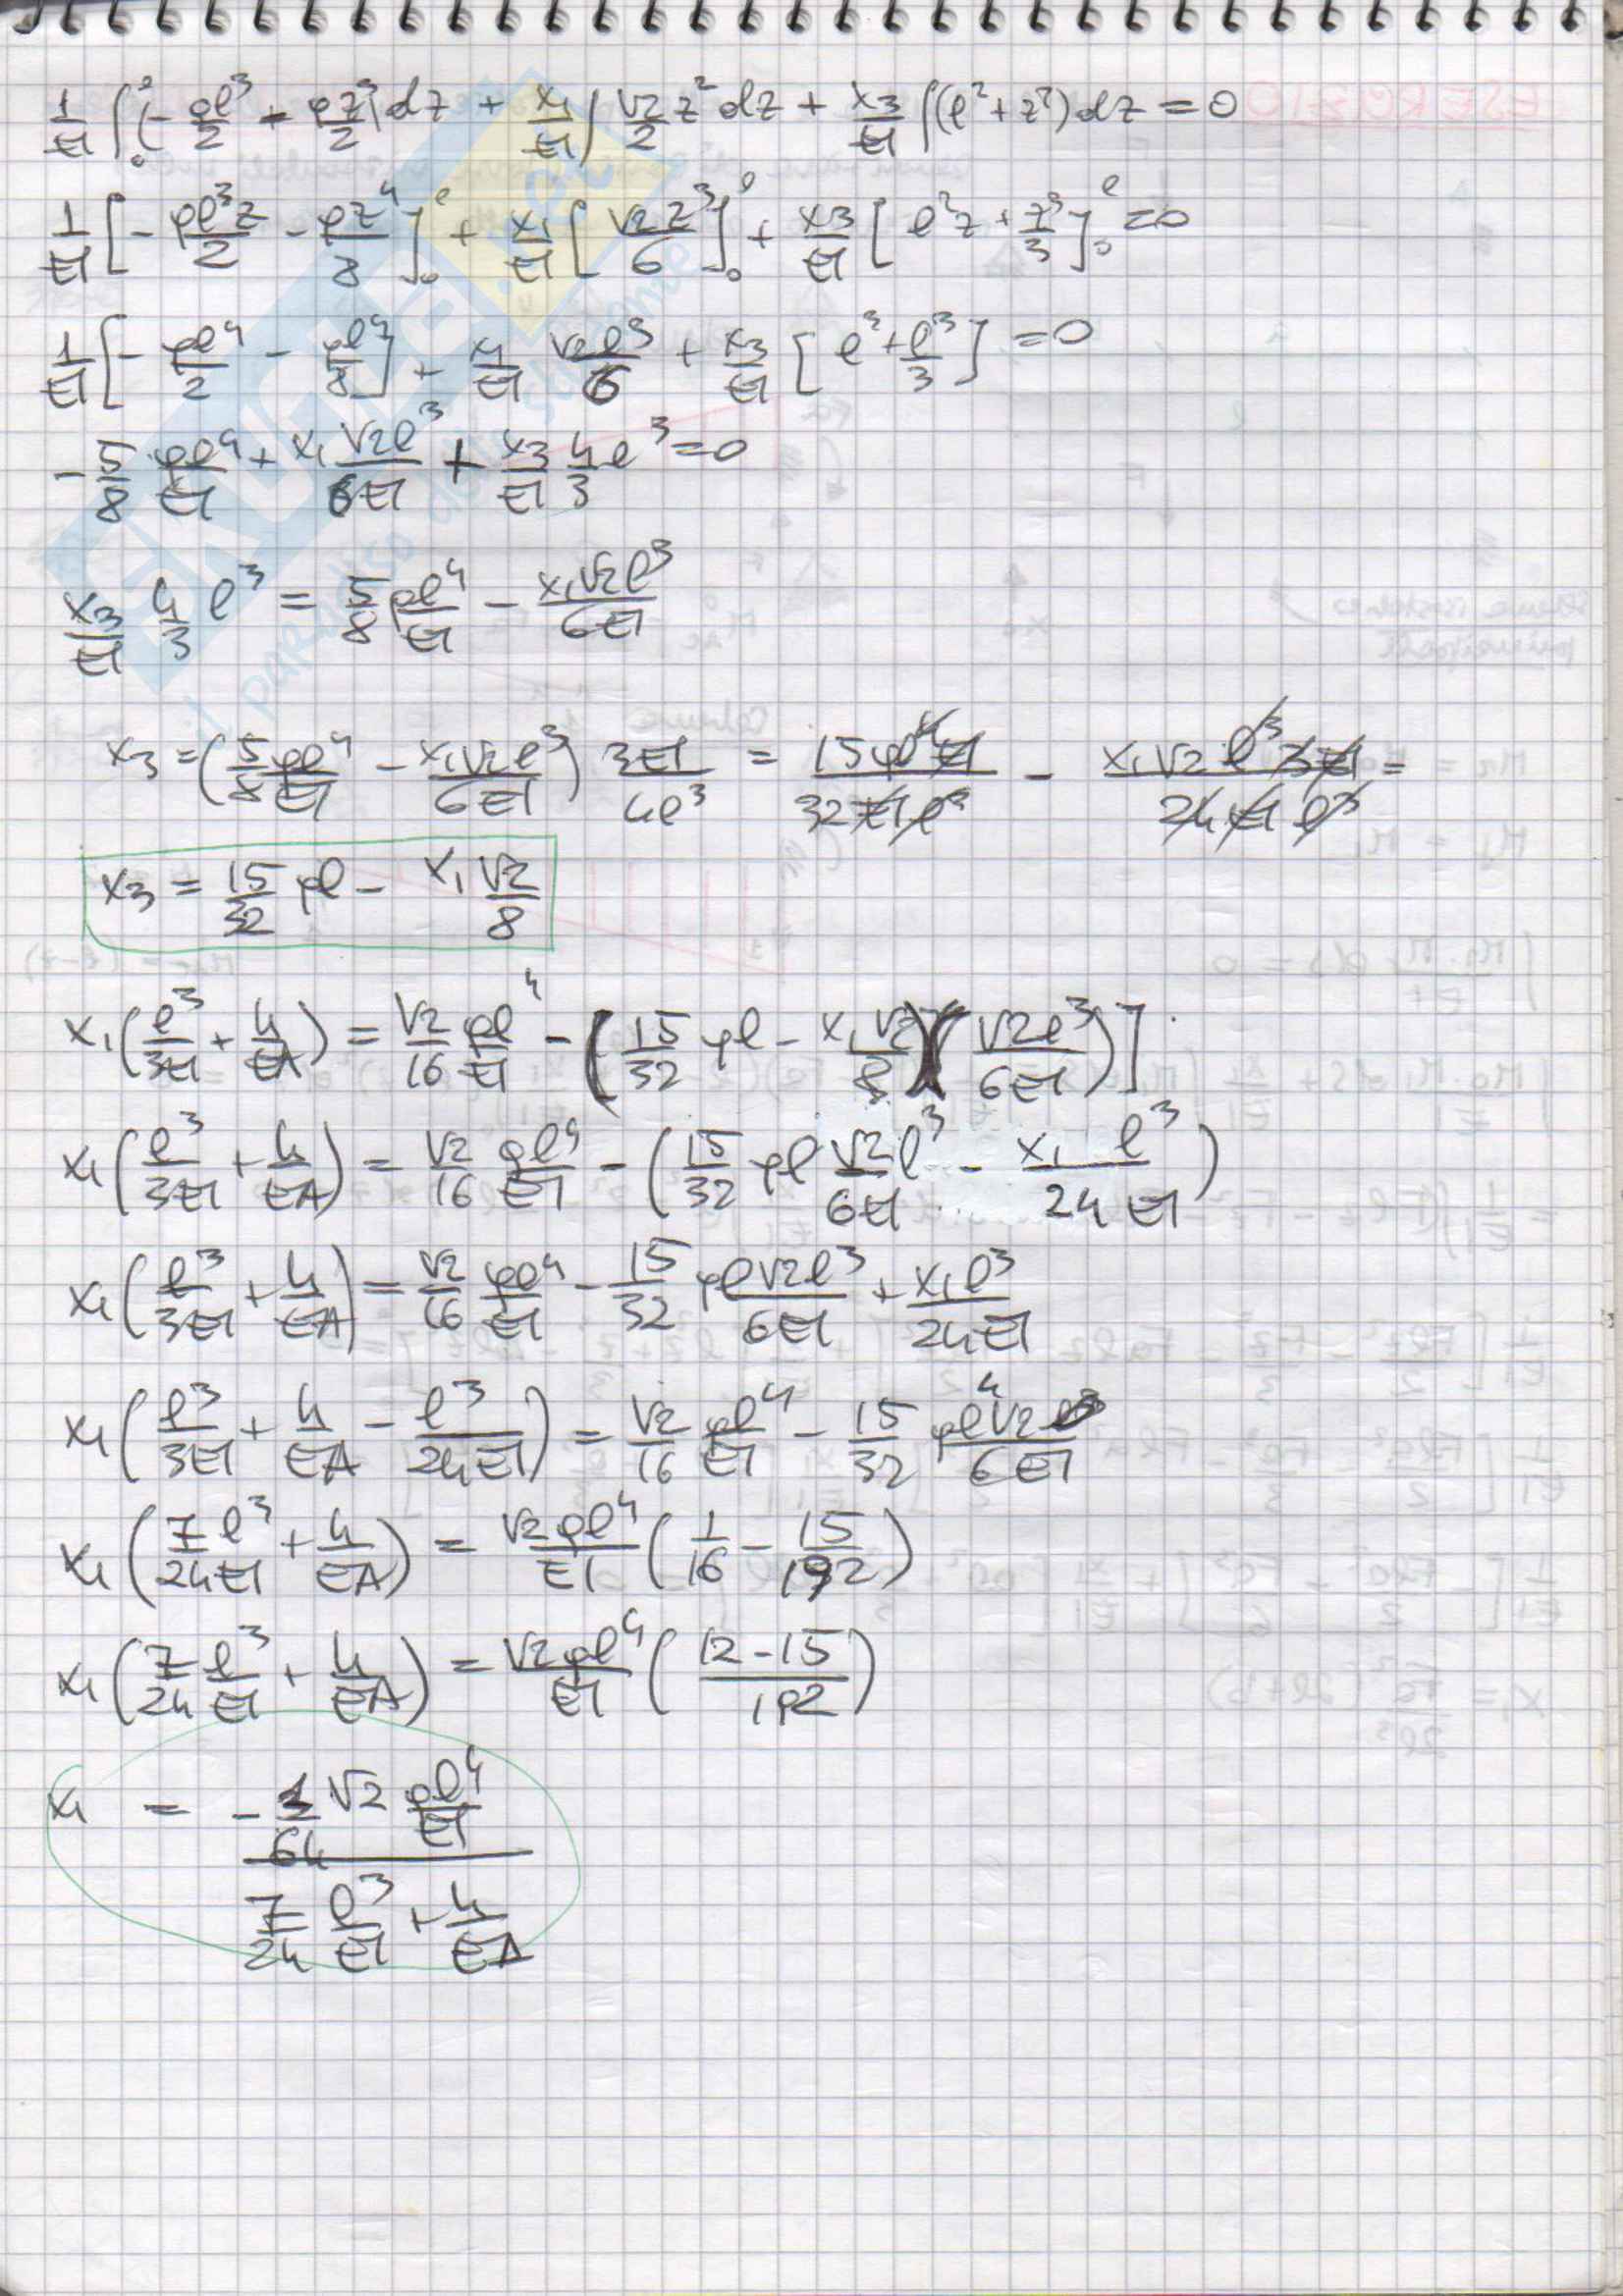 1/EI ∫₀ˡ (- pl³/2 - pz³/2) dz + x₁/EI ∫ √2/2 z² dz + x₃/EI ∫(l² + z²) dz = 0
1/EI [- pl³z/2 - pz⁴/8]₀ˡ + x₁/EI [√2 z³/6]₀ˡ + x₃/EI [l²z + z³/3]₀ˡ = 0
1/EI [- pl⁴/2 - pl⁴/8] + x₁/EI √2l³/6 + x₃/EI [l³ + l³/3] = 0
- 5/8 pl⁴/EI + x₁ √2l³/6EI + x₃/EI 4/3 l³ = 0
x₃/EI 4/3 l³ = 5/8 pl⁴/EI - x₁√2l³/6EI
x₃ = (5/8 pl⁴/EI - x₁√2l³/6EI) 3EI/4l³ = 15pl⁴EI/32EIl³ - x₁√2 l³ 3EI/24 EI l³ =
x₃ = 15/32 pl - x₁ √2/8
x₁(l³/3EI + 4/EA) = √2/16 pl⁴/EI - (15/32 pl - x₁√2/8)(√2l³/6EI)]
x₁(l³/3EI + 4/EA) = √2/16 pl⁴/EI - (15/32 pl √2/6EI l³ - x₁ l³/24 EI)
x₁(l³/3EI + 4/EA) = √2/16 pl⁴/EI - 15/32 pl√2l³/6EI + x₁l³/24EI
x₁(l³/3EI + 4/EA - l³/24EI) = √2/16 pl⁴/EI - 15/32 pl⁴√2/6EI
x₁(7l³/24EI + 4/EA) = √2pl⁴/EI (1/16 - 15/192)
x₁(7/24 l³/EI + 4/EA) = √2pl⁴/EI (12-15/192)
x₁ = (- 1/64 √2 pl⁴/EI) / (7/24 l³/EI + 4/EA)